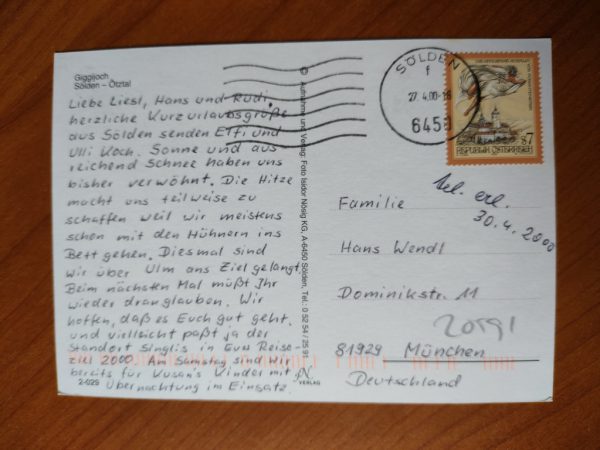 Giggijoch
Sölden – Ötztal
Liebe Liesl, Hans und Rudi,
herzliche Kurzurlaubsgrüße
aus Sölden senden Elfi und
Ulli Koch. Sonne und aus
reichend Schnee haben uns
bisher verwöhnt. Die Hitze
macht uns teilweise zu
schaffen weil wir meistens
schon mit den Hühnern ins
Bett gehen. Diesmal sind
wir über Ulm ans Ziel gelangt.
Beim nächsten Mal müßt Ihr
wieder dranglauben. Wir
hoffen, daß es Euch gut geht.
und vielleicht paßt ja der
Standort Singlis in Eure Reise-
ziel 2000. Am Samstag sind wir
bereits für Kinder mit
Übernachtung im Einsatz.
2-029
VERLAG
© Aufnahme und Verlag: Foto Isidor Nösig KG, A-6450 Sölden, Tel.: 0 52 54 / 25 91
SÖLDEN
f
27. 4.00
6450
S 7
REPUBLIK ÖSTERREICH
tel. erl.
30.4.2000
Familie
Hans Wendl
Dominikstr. 11
81929 München
Deutschland